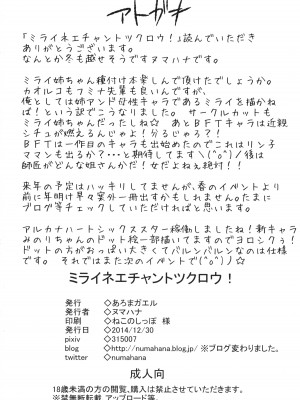 アトガキ
「ミライネエチャントツクロウ!」読んでいただき
ありがとうございます。
なんとか冬も越せそうですヌマハナです。
ミライ姉ちゃん種付け本楽しんで頂けたでしょうか。
カオルコもフミナ先輩も良いんですが、
俺としては姉アンド母性キャラであるミライを描かね
ば!という訳でこうなりました。 サークルカットも
ミライ姉ちゃんだったしねw あとBFTキャラは近親
シチュが燃えるんじゃよ!分るじゃろ?!
BFTは一作目のキャラも出始めたのでこれはリン子
ママンも出るか?・・・と期待してます＼(^o^)／後は
師匠がどんな姐さんかだ!女だよねぇ絶対!!
来年の予定はハッキリしてませんが、春のイベントより
前に年明け早々案外一冊出すかもしれません。たまに
ブログ等チェックしていただければと思います。
アルカナハートシックススター稼働しましたね!新キャラ
みのりちゃんのドット絵一部描いてますのでヨロシクぅ!
ドットの方がおっぱい大きくてバルンバルンなのは仕様
です。 それではまた次のイベントで(^o^)ノ☆
ミライネエチャントツクロウ!
発行 ◇あろまガエル
発行者 ◇ヌマハナ
印刷 ◇ねこのしっぽ 様
発行日 ◇2014/12/30
pixiv ◇315007
blog ◇http://numahana.blog.jp/ ※ブログ変わりました。
twitter ◇numahana
成人向
18歳未満の方の閲覧、購入は禁止させていただきます。
※禁無断転載 アップロード等。